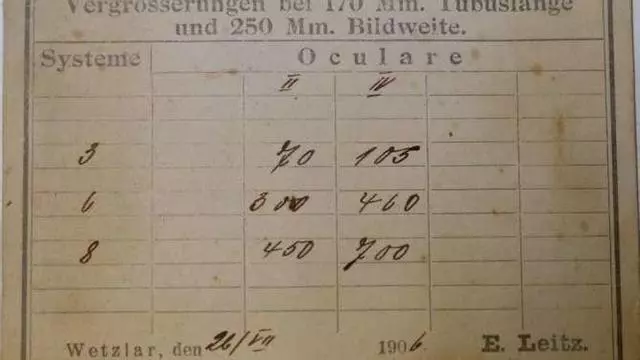 Vergrösserungen bei 170 Mm. Tubuslänge
und 250 Mm. Bildweite.
Systeme Oculare
II IV
3 70 105
6 300 460
8 450 700
Wetzlar, den 26/VII 1906. E. Leitz.